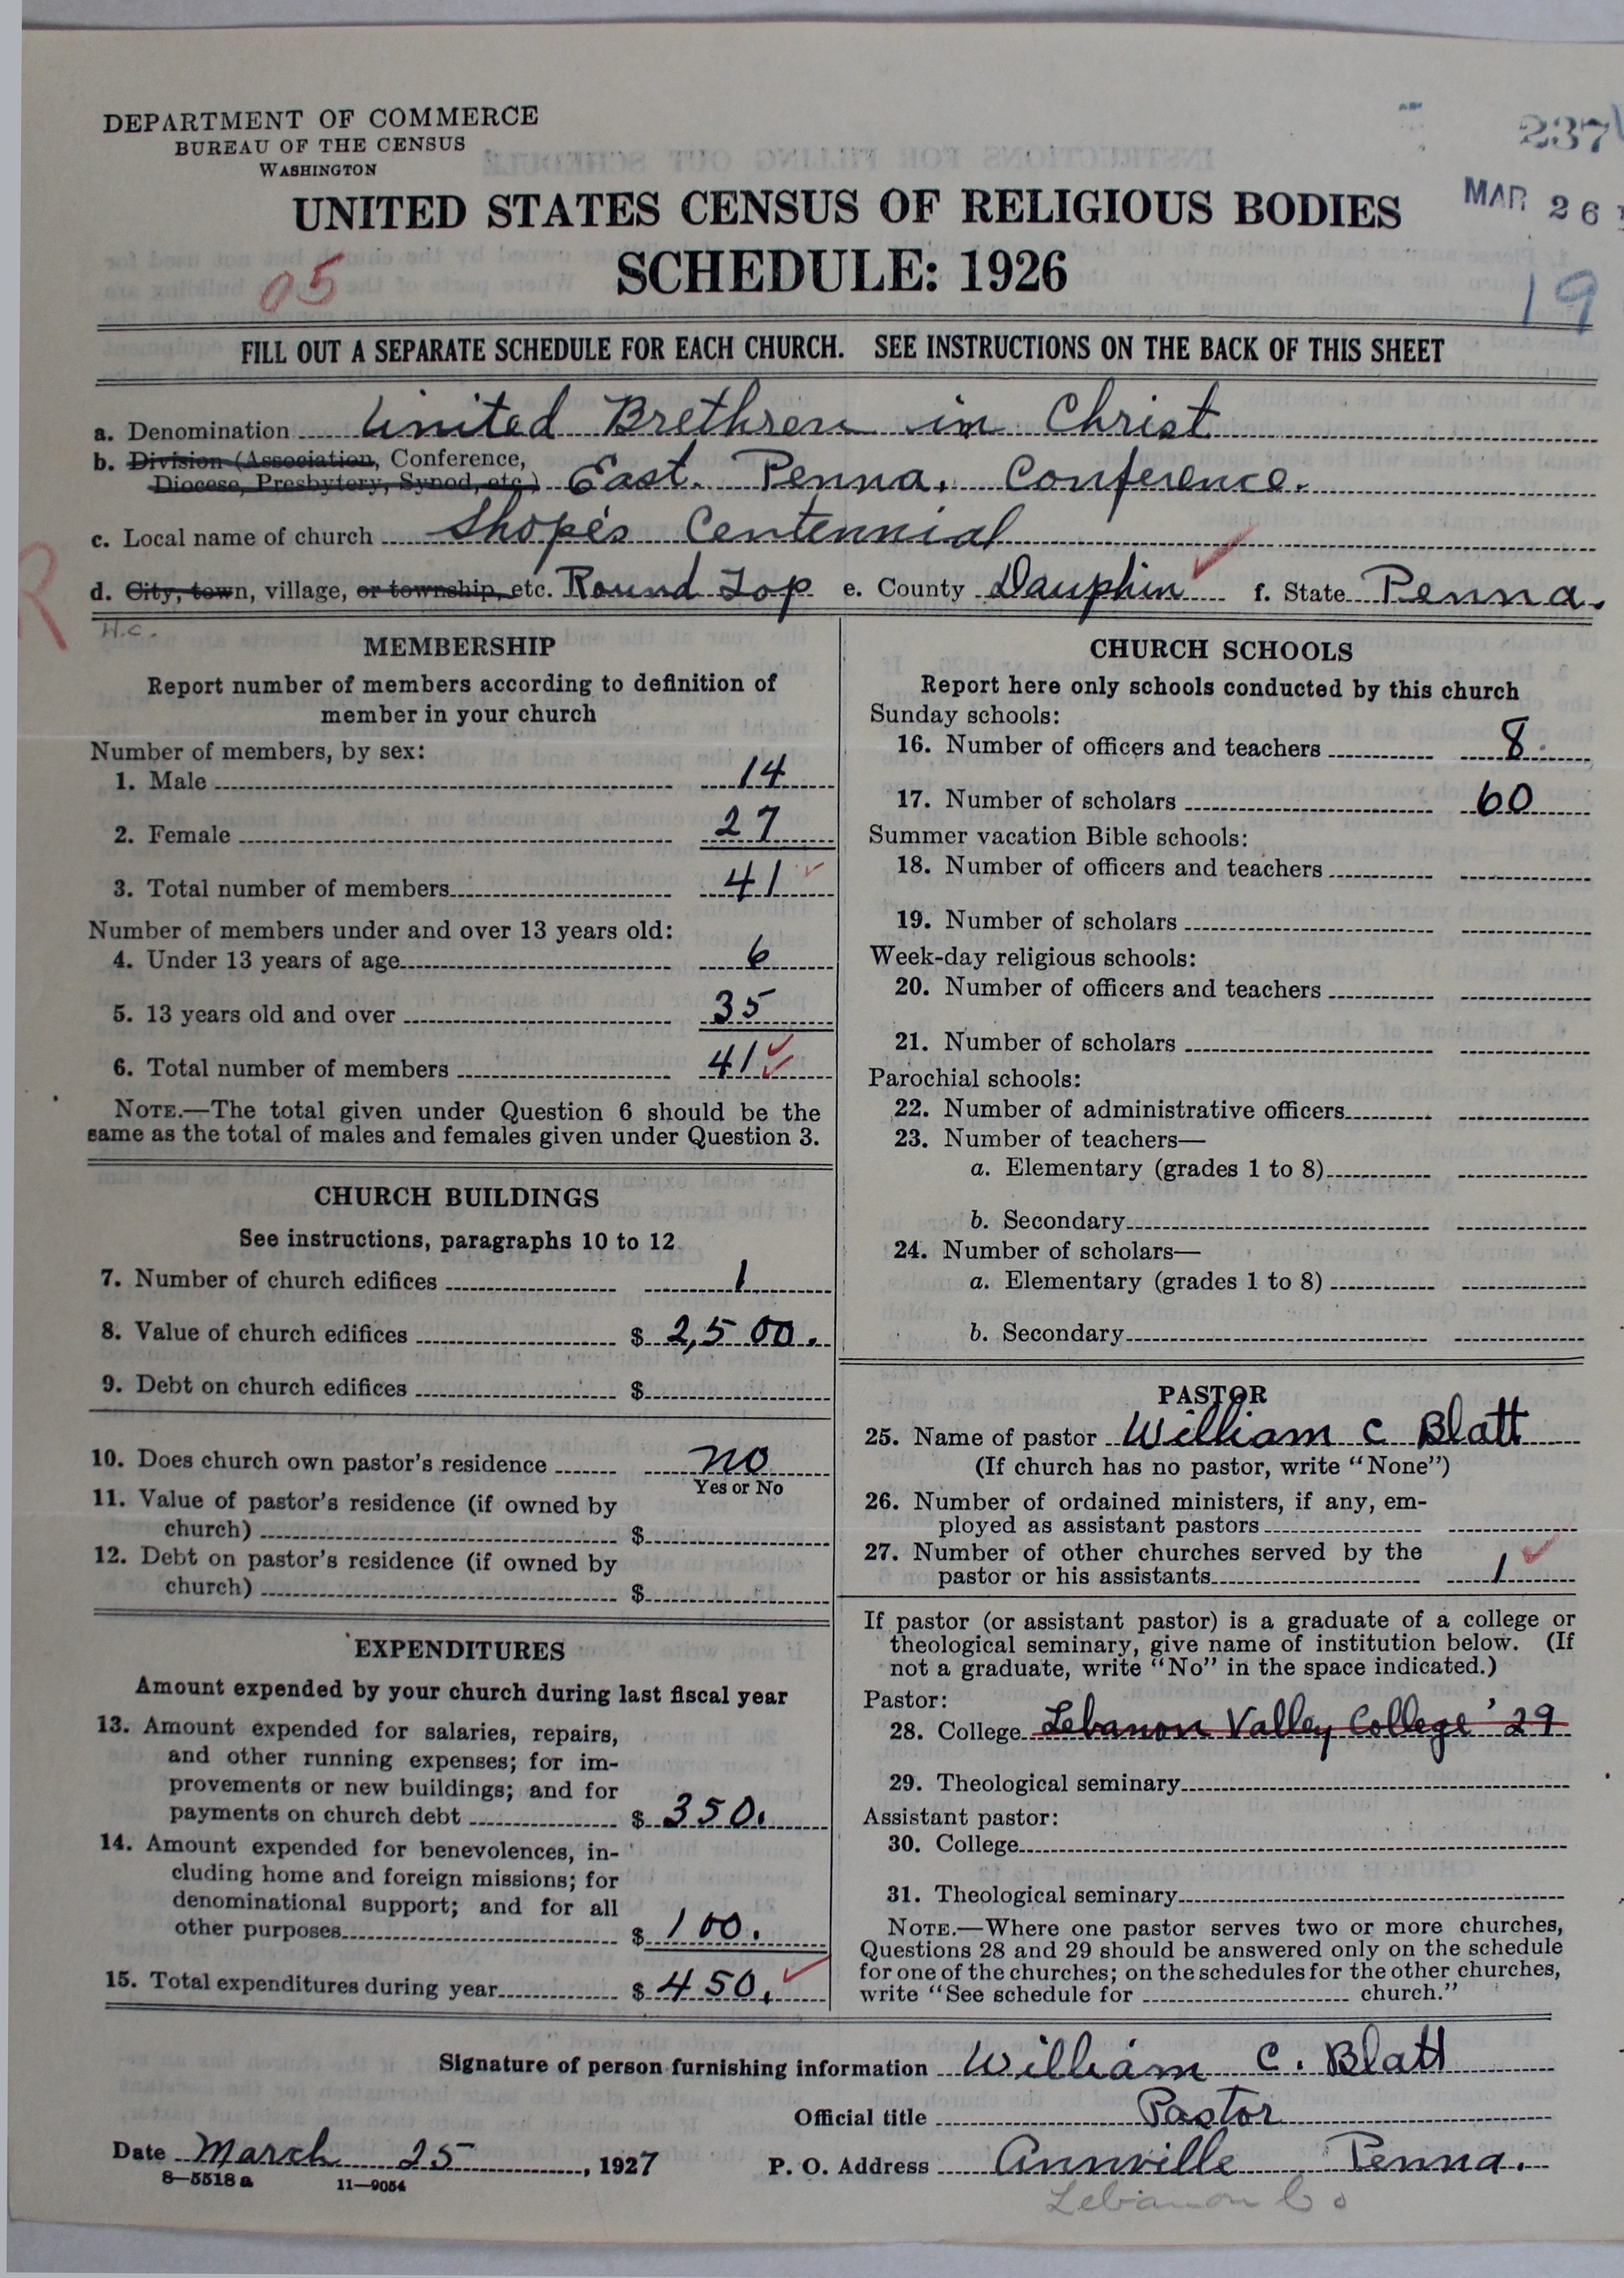 DEPARTMENT OF COMMERCE
BUREAU OF THE CENSUS
WASHINGTON
237
MAR 26
UNITED STATES CENSUS OF RELIGIOUS BODIES
SCHEDULE: 1926
05
19
FILL OUT A SEPARATE SCHEDULE FOR EACH CHURCH. SEE INSTRUCTIONS ON THE BACK OF THIS SHEET
a. Denomination United Brethren in Christ
b. Division (Association, Conference,
Diocese, Presbytery, Synod, etc.) East. Penna. Conference.
c. Local name of church Shope's Centennial
d. City, town, village, or township, etc. Round Top e. County Dauphin f. State Penna.
R
H.C.
MEMBERSHIP
Report number of members according to definition of
member in your church
Number of members, by sex:
1. Male 14
2. Female 27
3. Total number of members 41
Number of members under and over 13 years old:
4. Under 13 years of age 6
5. 13 years old and over 35
6. Total number of members 41
NOTE.—The total given under Question 6 should be the
same as the total of males and females given under Question 3.
CHURCH BUILDINGS
See instructions, paragraphs 10 to 12
7. Number of church edifices 1
8. Value of church edifices $ 2,500.
9. Debt on church edifices $
10. Does church own pastor's residence no
Yes or No
11. Value of pastor's residence (if owned by
church) $
12. Debt on pastor's residence (if owned by
church) $
EXPENDITURES
Amount expended by your church during last fiscal year
13. Amount expended for salaries, repairs,
and other running expenses; for im-
provements or new buildings; and for
payments on church debt $ 350.
14. Amount expended for benevolences, in-
cluding home and foreign missions; for
denominational support; and for all
other purposes $ 100.
15. Total expenditures during year $ 450.
CHURCH SCHOOLS
Report here only schools conducted by this church
Sunday schools:
16. Number of officers and teachers 8
17. Number of scholars 60
Summer vacation Bible schools:
18. Number of officers and teachers
19. Number of scholars
Week-day religious schools:
20. Number of officers and teachers
21. Number of scholars
Parochial schools:
22. Number of administrative officers
23. Number of teachers—
a. Elementary (grades 1 to 8)
b. Secondary
24. Number of scholars—
a. Elementary (grades 1 to 8)
b. Secondary
PASTOR
25. Name of pastor William C Blatt
(If church has no pastor, write "None")
26. Number of ordained ministers, if any, em-
ployed as assistant pastors
27. Number of other churches served by the
pastor or his assistants 1
If pastor (or assistant pastor) is a graduate of a college or
theological seminary, give name of institution below. (If
not a graduate, write "No" in the space indicated.)
Pastor:
28. College Lebanon Valley College '29
29. Theological seminary
Assistant pastor:
30. College
31. Theological seminary
NOTE.—Where one pastor serves two or more churches,
Questions 28 and 29 should be answered only on the schedule
for one of the churches; on the schedules for the other churches,
write "See schedule for church."
Signature of person furnishing information William C. Blatt
Official title Pastor
Date March 25, 1927 P. O. Address Annville Penna.
8—5518 a 11—9054
Lebanon Co